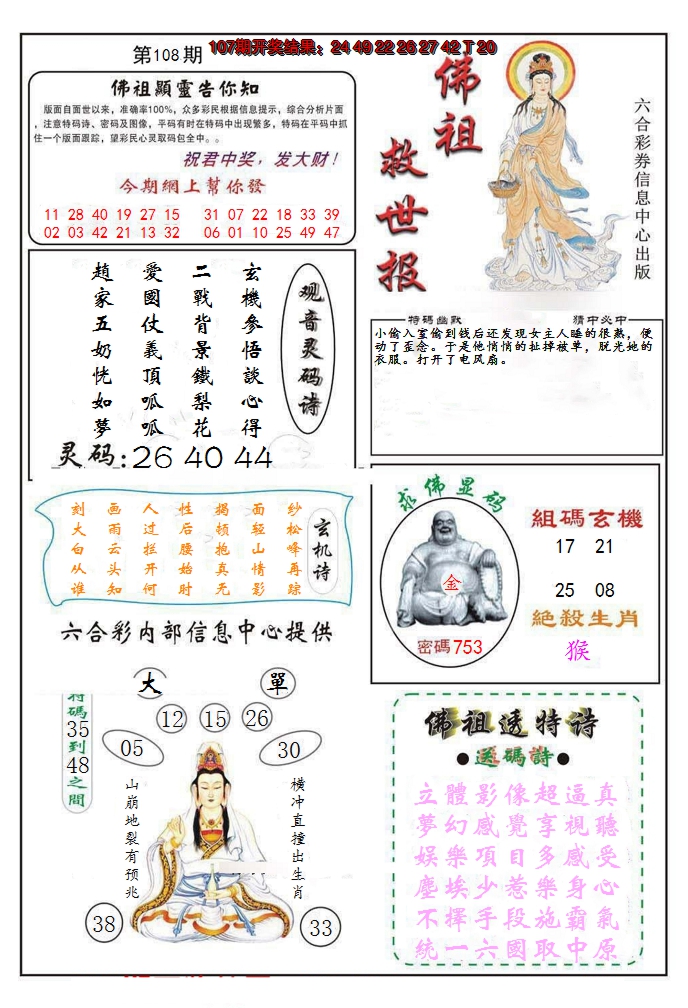 第108期
107期开奖结果：24 49 22 26 27 42 T 20
佛祖顯靈告你知
版面自面世以来，准确率100%，众多彩民根据信息提示，综合分析片面
，注意特码诗、密码及图像，平码有时在特码中出现繁多，特码在平码中抓
住一个版面跟踪，望彩民心灵取码包全中。。
祝君中奖，发大财！
今期網上幫你發
11 28 40 19 27 15 31 07 22 18 33 39
02 03 42 21 13 32 06 01 10 25 49 47
佛祖
救世报
六合彩券信息中心出版
观音灵码诗
玄機參悟談心得
二戰背景鐵梨花
愛國仗義頂呱呱
趙家五奶恍如夢
灵码:26 40 44
特碼幽默
猜中必中
小偷入室偷到钱后还发现女主人睡的很熟，便
动了歪念。于是他悄悄的扯掉被单，脱光她的
衣服。打开了电风扇。
玄机诗
纱松峰再踪
面轻山情影
揭顿抱真无
性后腰始时
人过拦开何
画雨云头知
刻大白从谁
六合彩内部信息中心提供
求佛显码
金
密碼753
組碼玄機
17 21
25 08
絕殺生肖
猴
大
單
特碼35到48之間
12 15 26
05
30
山崩地裂有预兆
横冲直撞出生肖
38
33
佛祖透特诗
●送碼詩●
立體影像超逼真
夢幻感覺享視聽
娱樂項目多感受
塵埃少惹樂身心
不擇手段施霸氣
統一六國取中原